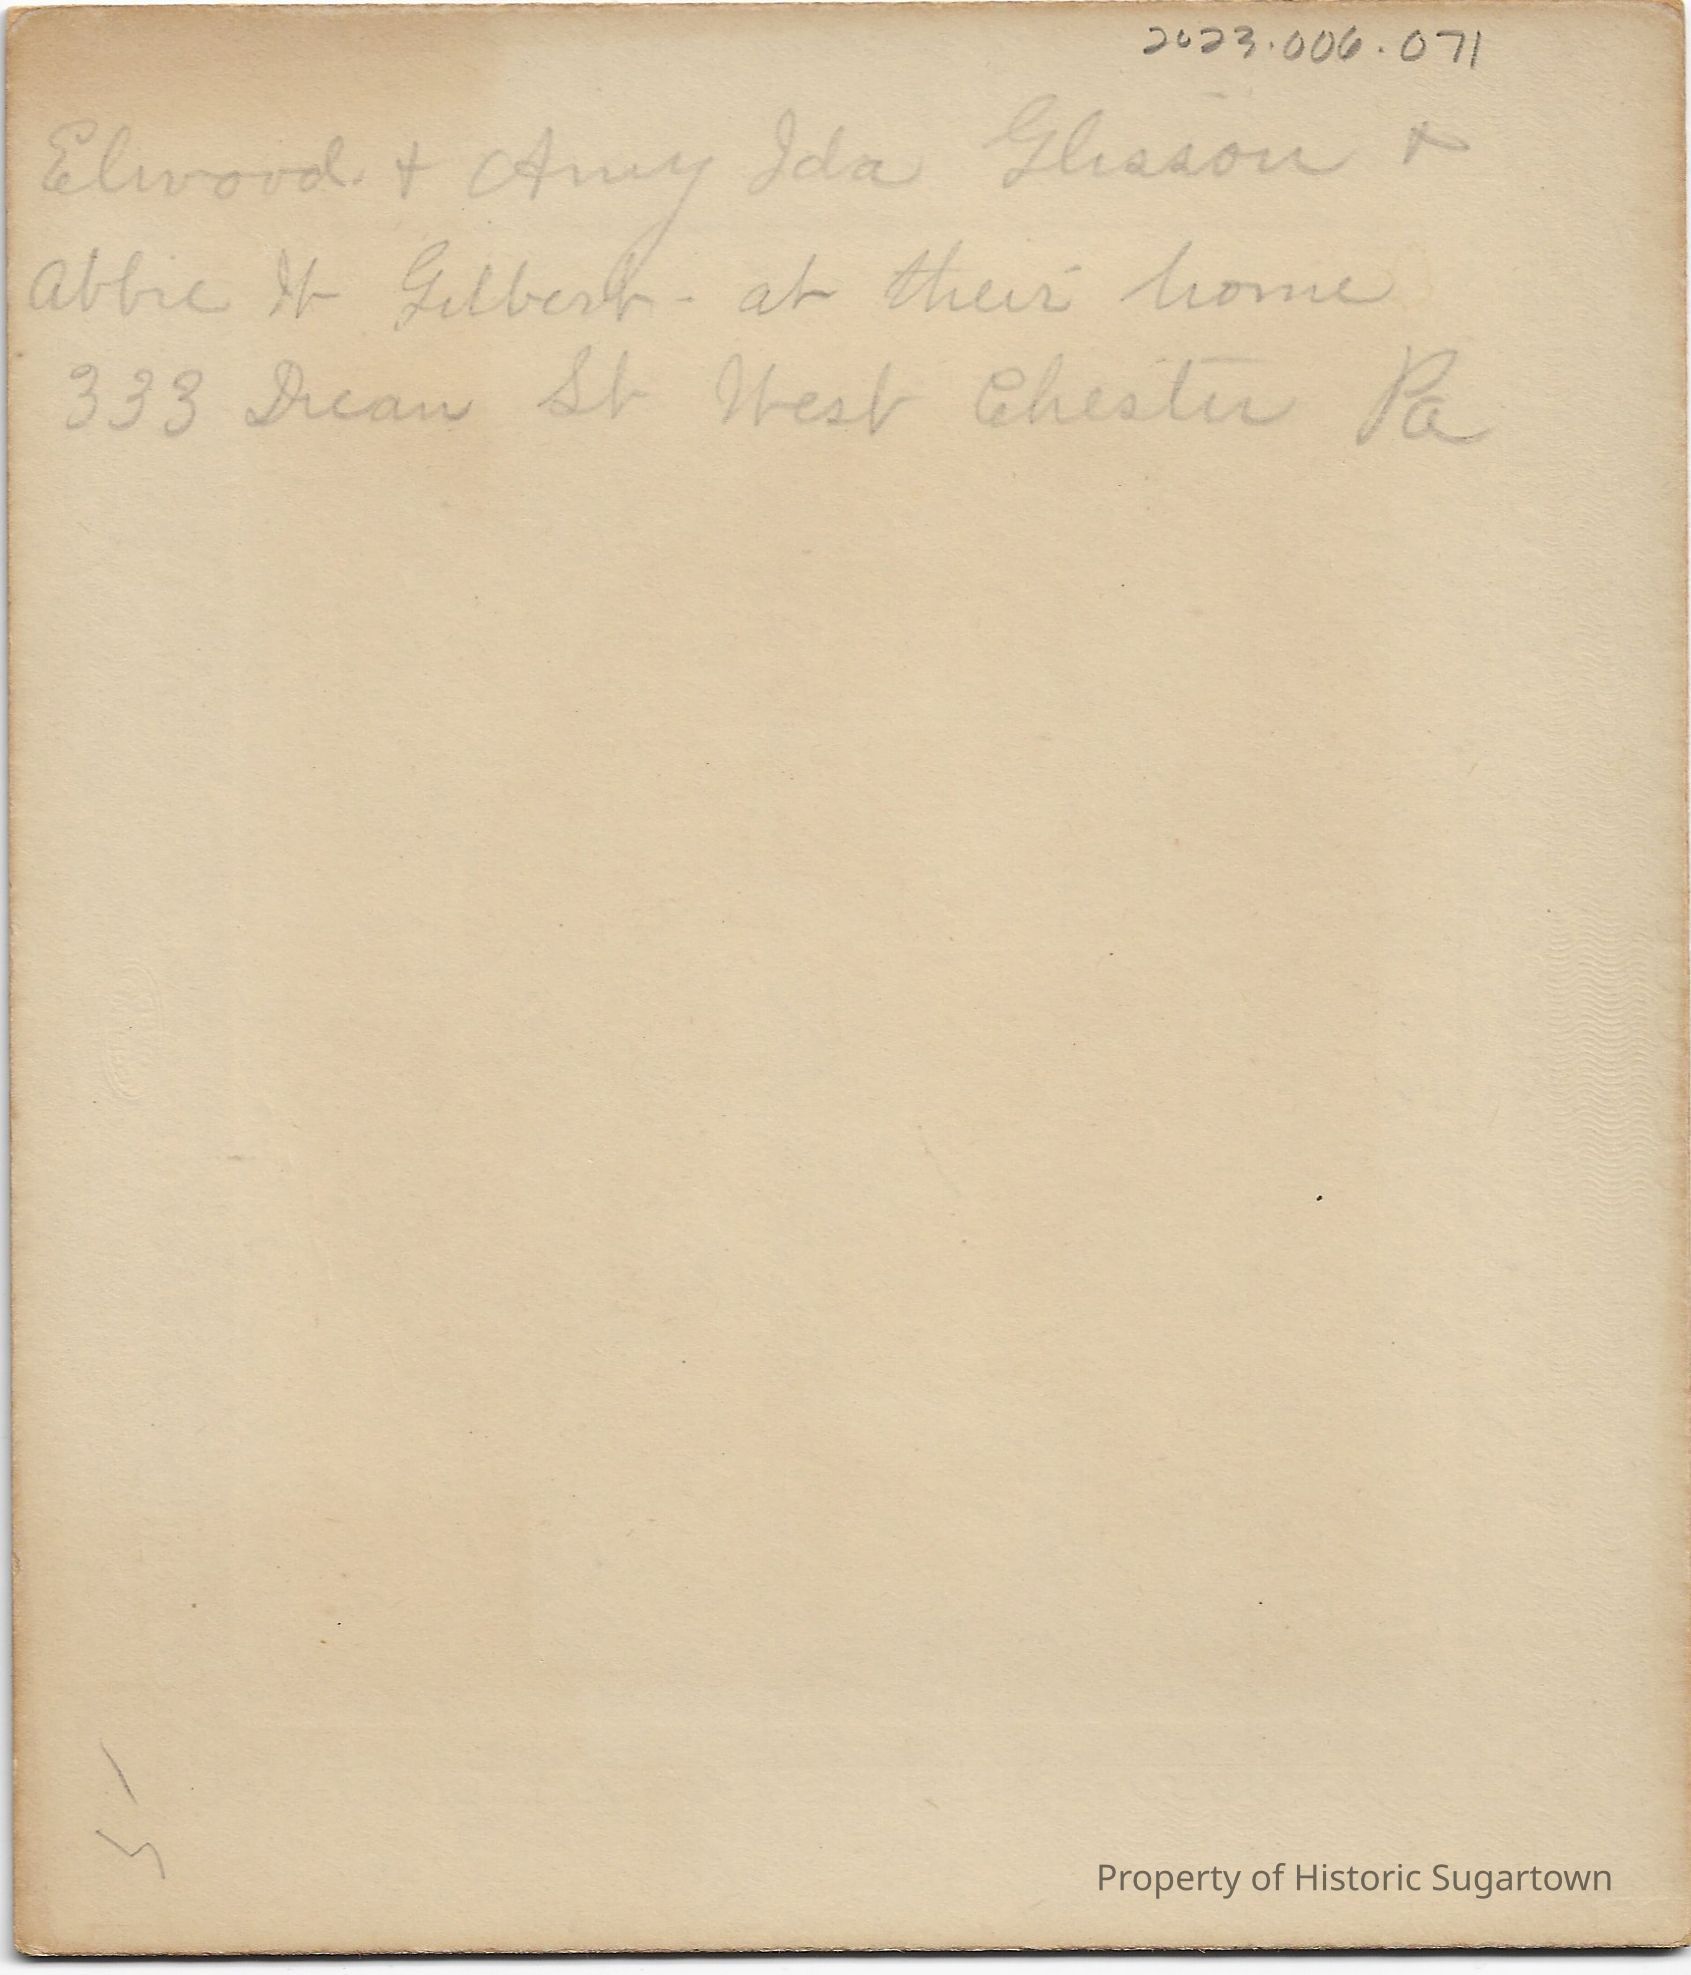 2023.006.071
Elwood + Amy Ida Glisson +
Abbie H Gilbert - at their home
333 Dean St West Chester Pa
Property of Historic Sugartown